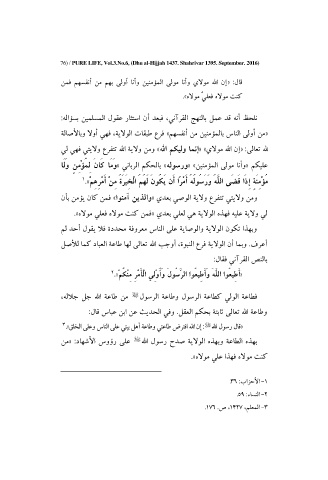 76) / PURE LIFE, Vol.3,No.6, (Dhu al-Hijjah 1437. Shahrivar 1395. September. 2016)
قال: «إن لله مولاي وأنا مولى المؤمنين وأنا أولى بهم من أنفسهم فمن
كنت مولاه فعليّ مولاه».
نلحظ أنه قد عمل بالنهج القرآني، فبعد أن استثار عقول المسلمين بسؤاله:
«من أولى الناس بالمؤمنين من أنفسهم» فرع طبقات الولاية، فهي أولا وبالأصالة
لله تعالى: «إن الله مولاي» «إنما وليكم الله» ومن ولاية الله تتفرع ولايتي فهي لي
عليكم «وأنا مولى المؤمنين» «ورسوله» بالحكم الرباني «وَمَا كَانَ لِمُؤْمِنٍ وَلَا
مُؤْمِنَةٍ إِذَا قَضَى اللَّهُ وَرَسُولُهُ أَمْرًا أَن يَكُونَ لَهُمُ الْخِيَرَةُ مِنْ أَمْرِهِمْ».¹
ومن ولايتي تتفرع ولاية الوصي بعدي «والذين آمنوا» فمن كان يؤمن بأن
لي ولاية عليه فهذه الولاية هي لعلي بعدي «فمن كنت مولاه فعلي مولاه».
وبهذا تكون الولاية والوصاية على الناس معروفة محددة فلا يقول أحد لم
أعرف. وبما أن الولاية فرع النبوة، أوجب الله تعالى لها طاعة العباد كما للأصل
بالنص القرآني فقال:
«أَطِيعُوا اللَّهَ وَأَطِيعُوا الرَّسُولَ وَأُولِي الْأَمْرِ مِنْكُمْ».²
فطاعة الولي كطاعة الرسول وطاعة الرسول ﷺ من طاعة الله جل جلاله،
وطاعة الله تعالى ثابتة بحكم العقل. وفي الحديث عن ابن عباس قال:
«قال رسول الله ﷺ: إن الله افترض طاعتي وطاعة أهل بيتي على الناس وعلى الخلق».³
بهذه الطاعة وبهذه الولاية صدح رسول الله ﷺ على رؤوس الأشهاد: «من
كنت مولاه فهذا علي مولاه».
١- الأحزاب: ٣٦
٢- النساء: ٥٩.
٣- المعلم، ١٤٢٧، ص. ١٧٦.